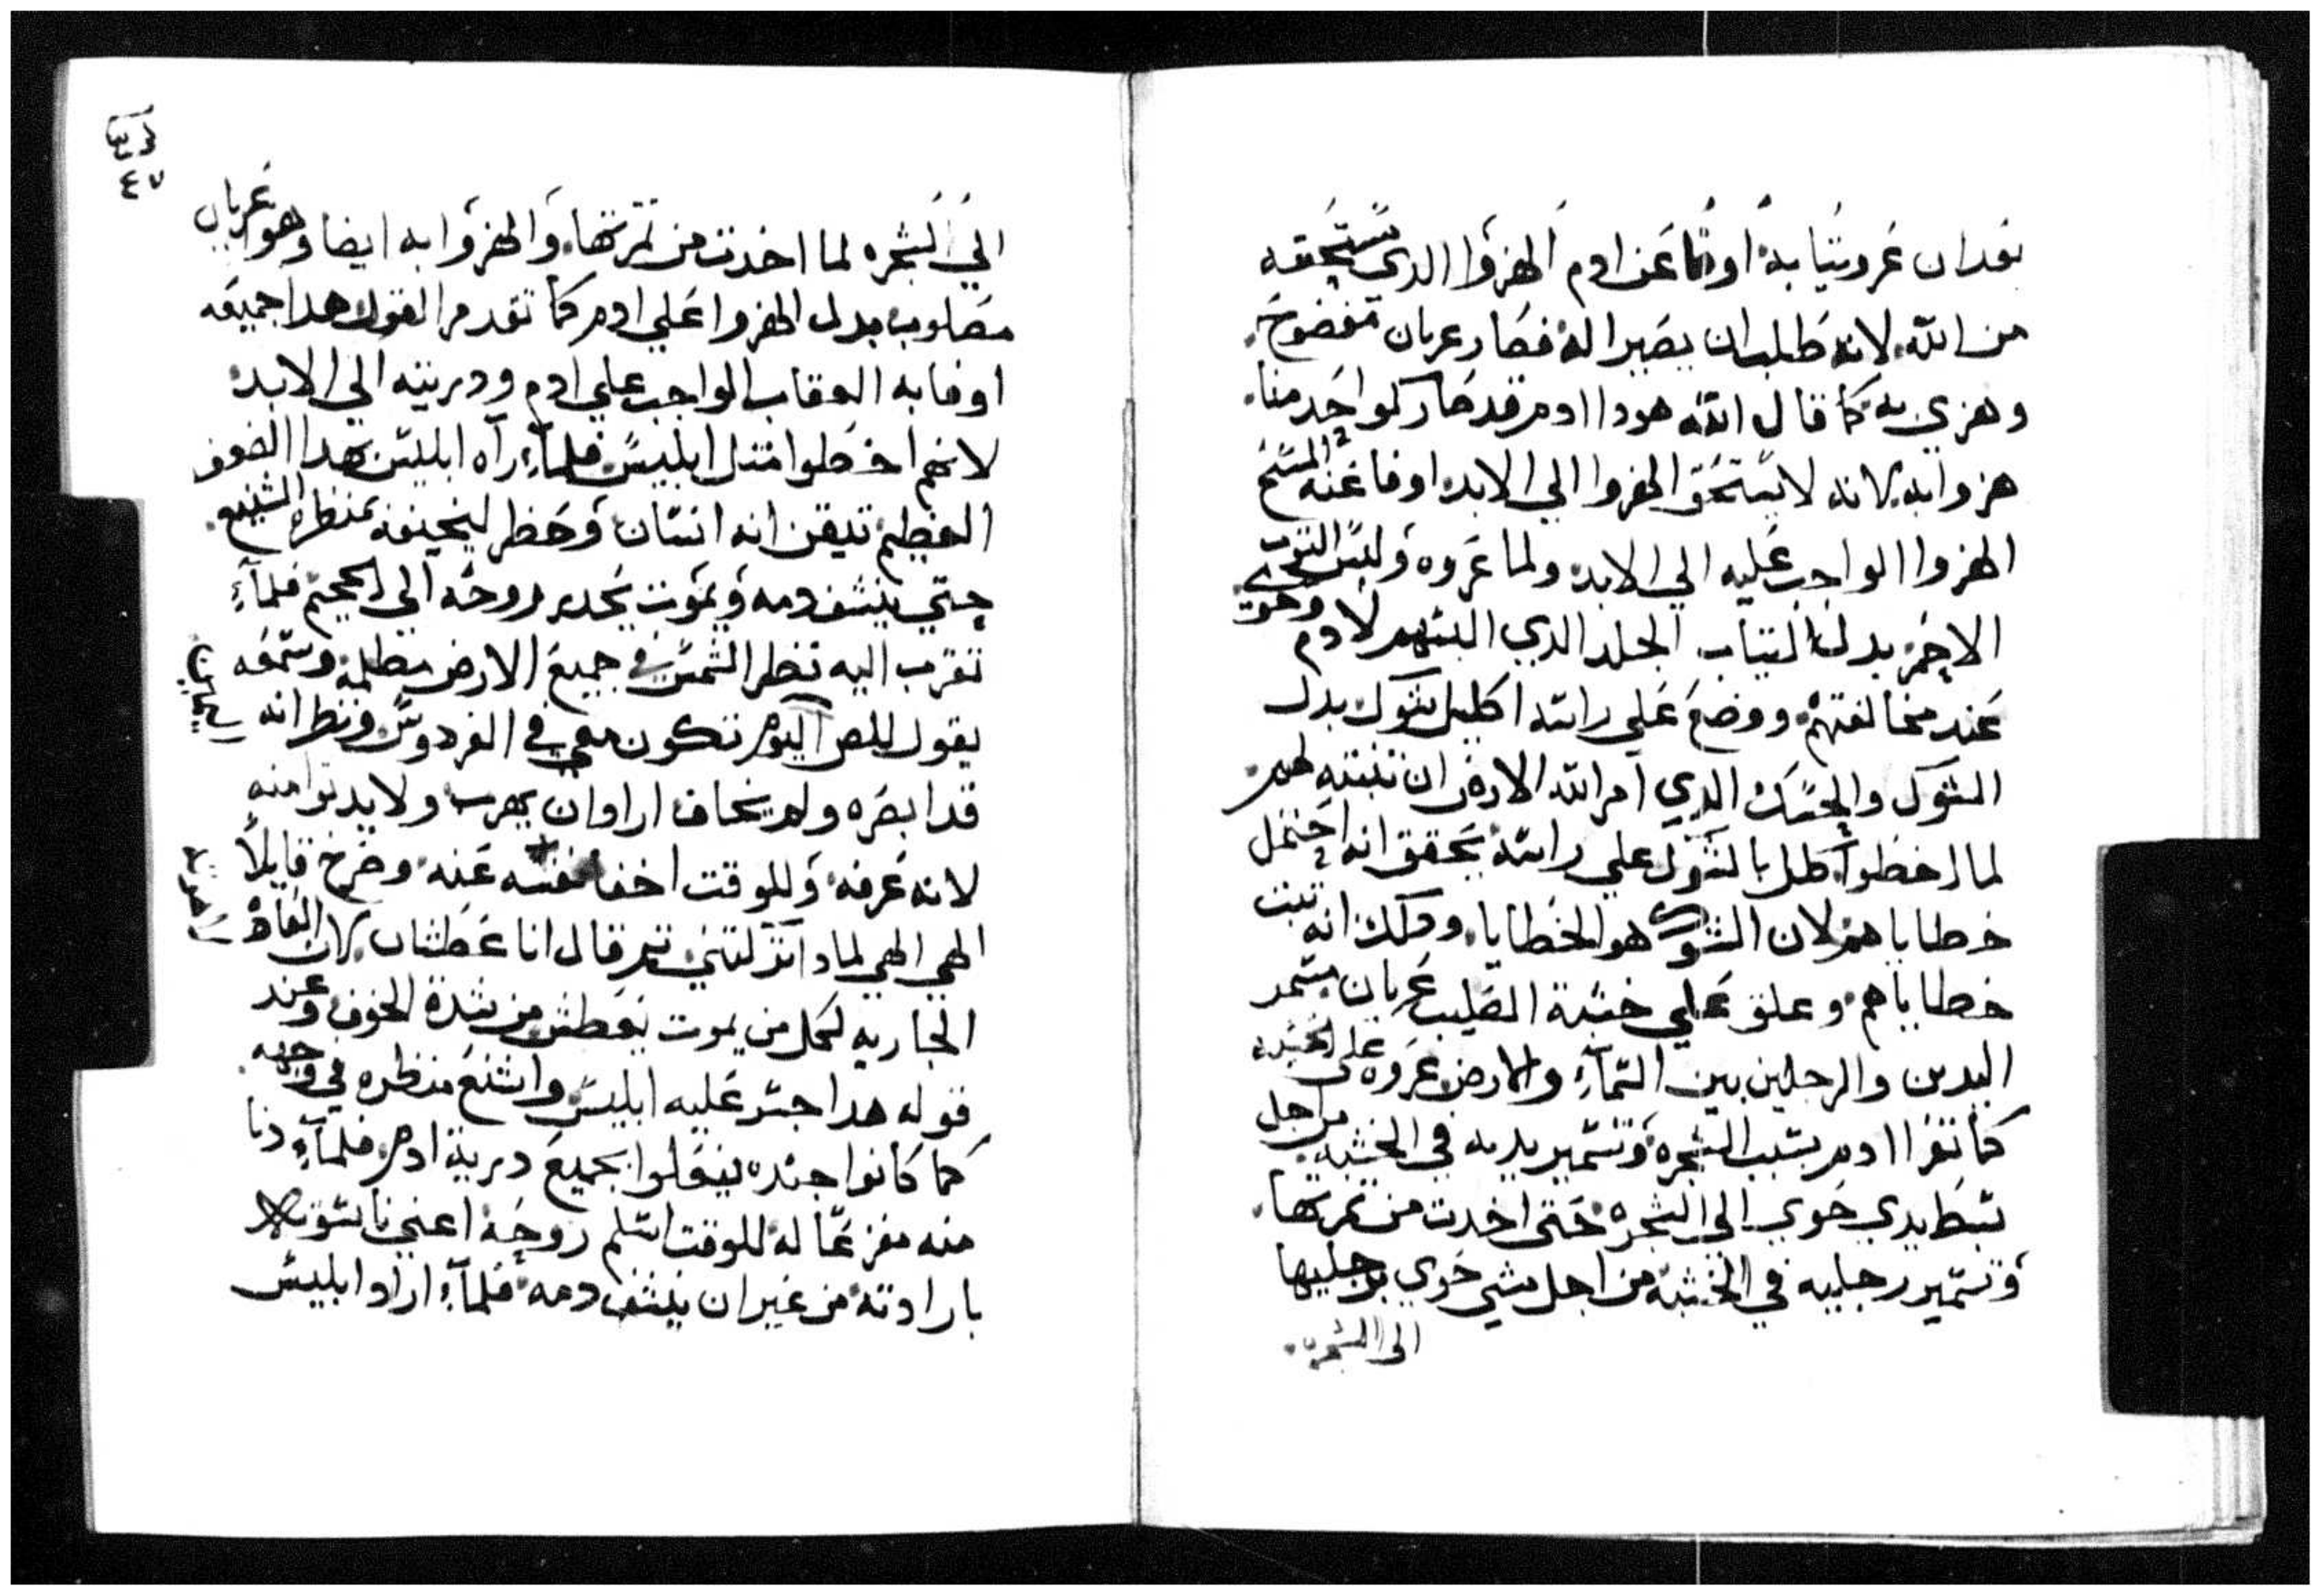 بعد ان عروه ثيابه اوفا عن ادم الهزوا الدي يستحقه
من الله لانه طلب ان يصير اله فصار عريان مفضوح
وهزي به كما قال الله هودا ادم قد صار كواحد منا
هزوا به لانه لا يستحق الهزوا الي الابد اوفا عنه المسيح
الهزوا الواجب عليه الي الابد ولما عروه ولبس التوب
الاحمر بدل التياب الجلد الدي البسهم لادم وحوي
عند مخالفتهم ووضع علي راسه اكليل شوك بدل
الشوك والحسك الدي امر الله الارض ان تنبته لهم
لما اخطوا كلل بالشوك علي راسه يحقق انه احتمل
خطاياهم لان الشوك هو الخطايا ودلك انه تبت
خطاياهم وعلق علي خشبة الصليب عريان مسمر
اليدين والرجلين بين السماء والارض عروه علي الخشبه
كما تعرا ادم بسبب الشجره وتسمير يديه في الخشبه من اجل
بسط يدي حوي الي الشجره حتي اخدت من تمرتها
وتسمير رجليه في الخشبه من اجل مشي حوي برجليها
الي الشجره
٤٧
الي الشجره لما اخدت من تمرتها والهزوا به ايضا وهو عريان
مصلوب بدل الهزوا علي ادم كما تقدم القول هدا جميعه
اوفا به العقاب الواجب علي ادم ودريته الي الابد
لانهم اخطوا متل ابليس فلماء راه ابليس بهدا الضعف
العظيم تيقن انه انسان وحظر ليخيفه بمنظره الشنيع
حتي ينشف دمه ويموت يحدر روحه الي الجحيم فلماء
تقرب اليه نظر الشمس في جميع الارض مظلمة وسمعه
يقول للص اليوم تكون معي في الفردوس ونظر انه
قد ابصره ولم يخاف اراد ان يهرب ولا يدنوا منه
لانه عرفه وللوقت اخفا نفسه عنه وصرخ قايلا
الهي الهي لمادا تركتني تم قال انا عطشان لان العاده
الجاريه لكل من يموت يعطش من شدة الخوف وعند
قوله هدا جسر عليه ابليس واشنع منظره في وجهه
كما كانوا جنده يفعلوا بجميع درية ادم فلماء دنا
منه مفزعا له للوقت اسلم روحه اعني ناسوته
بارادته من غير ان ينشف دمه فلماء اراد ابليس